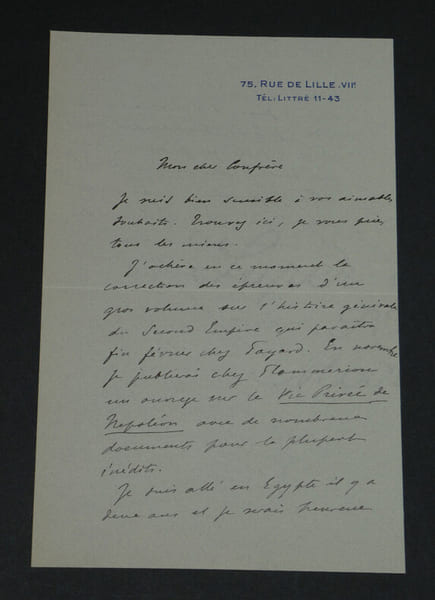 75, RUE DE LILLE (VIIe)
TÉL: LITTRÉ 11-43
Mon cher Confrère
Je suis bien sensible à vos aimables
souhaits. Trouvez ici, je vous prie,
tous les miens.
J'achève en ce moment la
correction des épreuves d'un
gros volume sur l'histoire générale
du Second Empire qui paraîtra
fin février chez Fayard. En novembre
je publierai chez Flammarion
un ouvrage sur la Vie Privée de
Napoléon avec de nombreux
documents pour la plupart
inédits.
Je suis allé en Egypte il y a
deux ans et je serais heureux